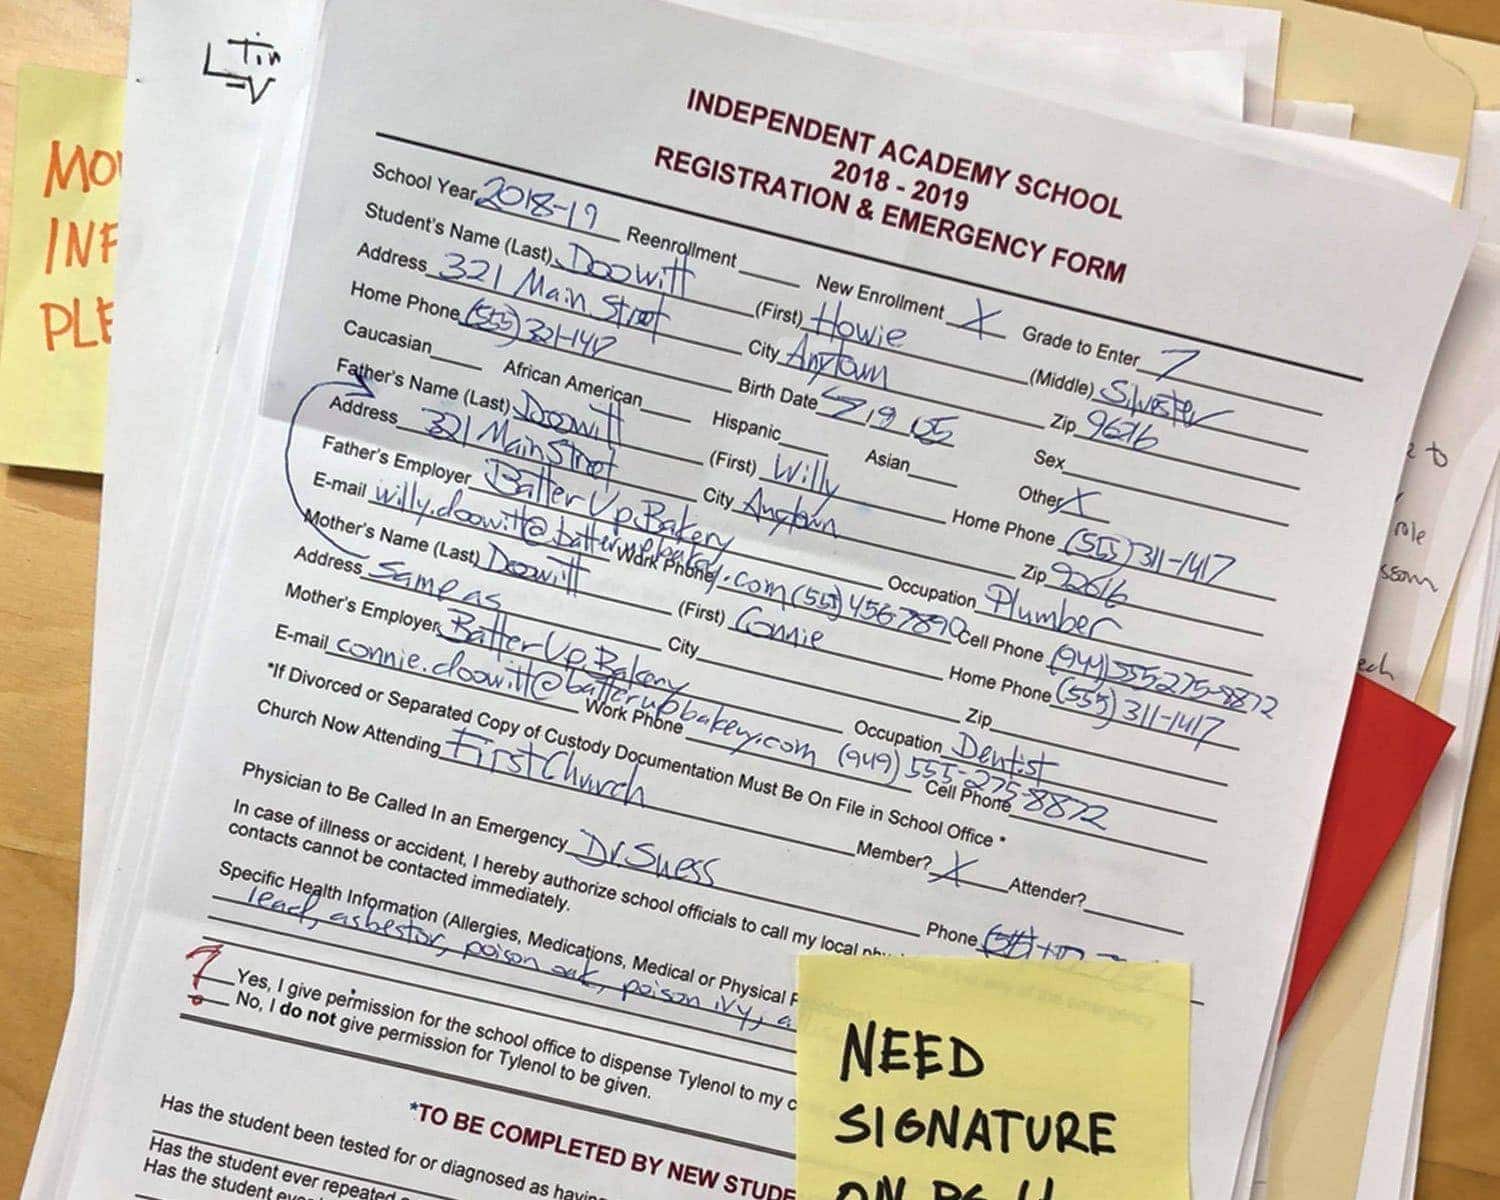 Tin
L=V
MO
INF
PLE
INDEPENDENT ACADEMY SCHOOL
2018 - 2019
REGISTRATION & EMERGENCY FORM
School Year 2018-19 Reenrollment New Enrollment X Grade to Enter 7
Student's Name (Last) Doowitt (First) Howie (Middle) Silvester
Address 321 Main Street City Anytown Zip 9676
Home Phone (555) 321-1417 Birth Date 5 19 05 Sex
Caucasian African American Hispanic Asian Other X
Father's Name (Last) Doowitt (First) Willy Home Phone (555) 311-1417
Address 321 Main Street City Anytown Zip 92616
Father's Employer Batter Up Bakery Occupation Plumber
E-mail willy.doowitt@batterupbakery.com Work Phone (555) 456-7890 Cell Phone (944) 555-275-8872
Mother's Name (Last) Doowitt (First) Connie Home Phone (555) 311-1417
Address same as City Zip
Mother's Employer Batter Up Bakery Occupation Dentist
E-mail connie.doowitt@batterupbakery.com Work Phone (949) 555-275-8872 Cell Phone
*If Divorced or Separated Copy of Custody Documentation Must Be On File in School Office *
Church Now Attending First Church Member? X Attender?
Physician to Be Called In an Emergency Dr Suess Phone
In case of illness or accident, I hereby authorize school officials to call my local
contacts cannot be contacted immediately.
Specific Health Information (Allergies, Medications, Medical or Physical
lead, asbestor, poison oak, poison ivy, a
? Yes, I give permission for the school office to dispense Tylenol to my c
No, I do not give permission for Tylenol to be given.
*TO BE COMPLETED BY NEW STUDE
Has the student been tested for or diagnosed as havin
Has the student ever repeated
Has the student ever
NEED
SIGNATURE
ON PG 4
to
role
ech